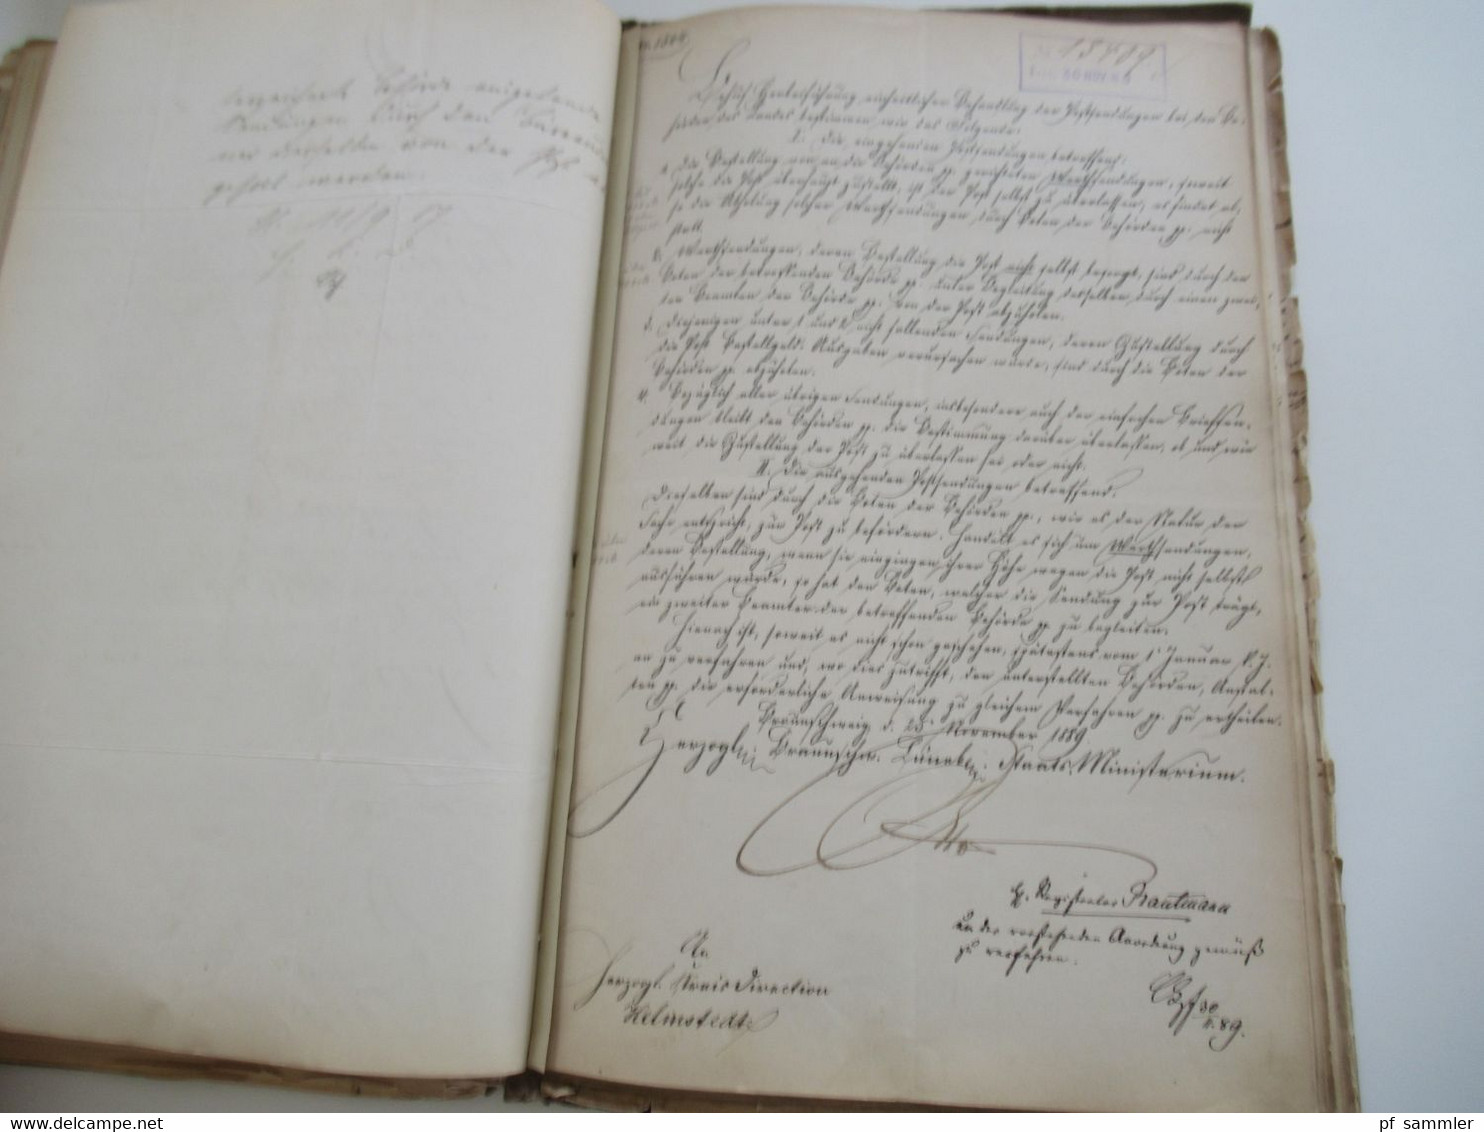 verzeichnete Behörde eingehende
Sendungen durch den
ner derselben von der Post ab
geholt werden.
H. 11/9 07
№ 15489
Behuf Herbeiführung einheitlicher Behandlung der Postsendungen bei den Be-
hörden des Landes bestimmen wir das Folgende:
I. Die eingehenden Postsendungen betreffend:
a. Die Bestellung von an die Behörden pp. gerichteten Werthsendungen, soweit
solche die Post überhaupt zustellt, ist der Post selbst zu überlassen, es findet al-
so die Abholung solcher Werthsendungen durch Boten der Behörden pp. nicht
statt.
b. Werthsendungen, deren Bestellung die Post nicht selbst besorgt, sind durch den
Boten der betreffenden Behörde pp. unter Begleitung desselben durch einen zwei-
ten Beamten der Behörde pp. von der Post abzuholen.
3. Diejenigen unter 1 und 2 nicht fallenden Sendungen, deren Zustellung durch
die Post Bestellgeld-Ausgaben verursachen würde, sind durch die Boten der
Behörden pp. abzuholen.
4. Bezüglich aller übrigen Sendungen, insbesondere auch der einfachen Briefsen-
dungen bleibt den Behörden pp. die Bestimmung darüber überlassen, ob und wie
weit die Zustellung der Post zu überlassen sei oder nicht.
II. Die ausgehenden Postsendungen betreffend.
Dieselben sind durch die Boten der Behörden pp., wie es der Natur der
Sache entspricht, zur Post zu befördern. Handelt es sich um Werthsendungen,
deren Bestellung, wenn sie eingingen ihrer Höhe wegen die Post nicht selbst
ausführen würde, so hat den Boten, welcher die Sendung zur Post trägt,
ein zweiter Beamter der betreffenden Behörde pp. zu begleiten.
Hiernach ist, soweit es nicht schon geschehen, spätestens vom 1. Januar k. J.
an zu verfahren und, wo dies zutrifft, den unterstellten Behörden, Anstal-
ten pp. die erforderliche Anweisung zu gleichem Verfahren pp. zu ertheilen.
Braunschweig d. 23. November 1889
Herzogl. Braunschw. Lünebg. Staats-Ministerium.
Otto
H. Registrator Trautmann
um der vorstehenden Anordnung gemäß
zu verfahren.
30
11. 89.
An
Herzogl. Kreisdirection
Helmstedt
pf sammler